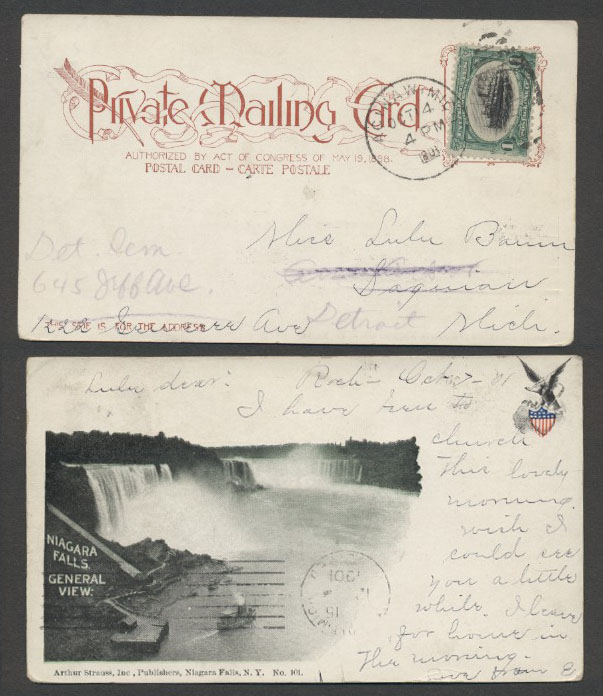 Private Mailing Card
AUTHORIZED BY ACT OF CONGRESS OF MAY 19, 1898.
POSTAL CARD – CARTE POSTALE
SAGINAW, MICH
OCT 4
4 PM
1901
Miss Lulu Baum
Saginaw
Det. Sem
645 Jeff Ave.
THIS SIDE IS FOR THE ADDRESS
Ave Detroit Mich.
Lulu dear: Roch– Oct – 01
I have been to
church
this lovely
morning.
wish I
could see
you a little
while. I leave
for home in
the morning.
NIAGARA
FALLS.
GENERAL
VIEW.
1901
Arthur Strauss, Inc., Publishers, Niagara Falls, N. Y. No. 101.